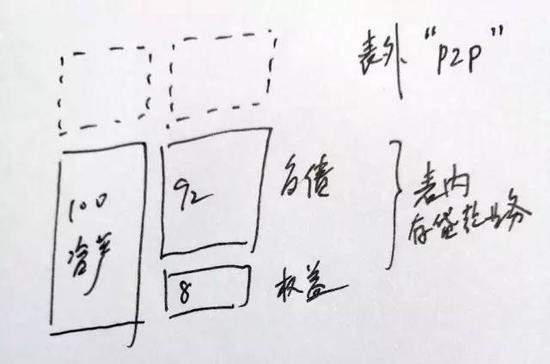 表外“P2P”
100
资产
92
负债
8
权益
表内
存贷款业务